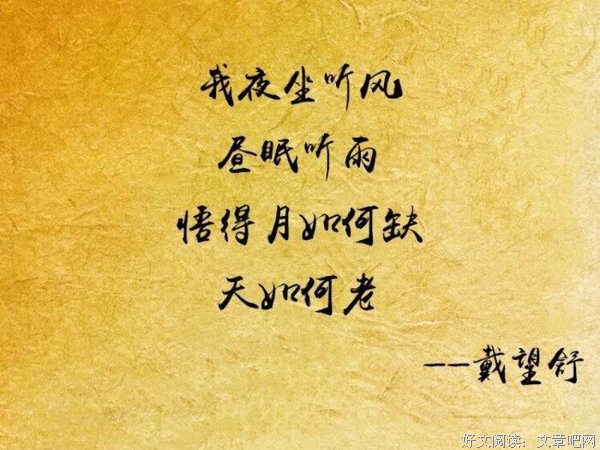 我夜坐听风
昼眠听雨
悟得月如何缺
天如何老
--戴望舒
好文阅读：文章吧网